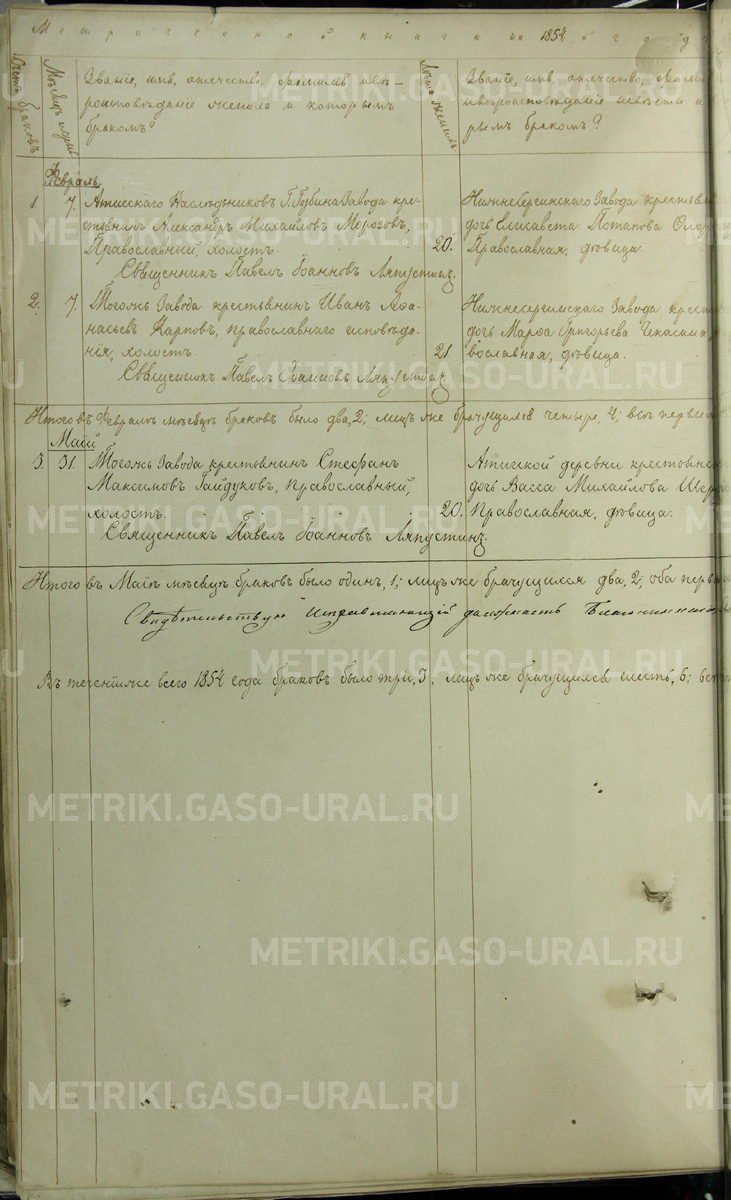 Метрической книги на 1854й год
Счетъ браковъ
Мѣсяцъ и день
Званіе, имя, отечество, фамилія и вѣ-
роисповѣданіе жениха и которымъ
бракомъ?
Лѣта жениха
Званіе, имя, отечество,
и вѣроисповѣданіе невѣсты и
рымъ бракомъ?
Февраль
1. 7. Атигскаго Наслѣдниковъ Г. Губина Завода кре-
стьянинъ Александръ Михайловъ Морозовъ,
Православный, холостъ. 20.
Священникъ Павелъ Іоанновъ Ляпустинъ.
Нижнесергинскаго Завода крестьян
дочь Елисавета Потапова
Православная, дѣвица.
2. 7. Тогожъ Завода крестьянинъ Иванъ Аѳа-
насьевъ Карповъ, православнаго исповѣда-
нія, холостъ. 21
Священникъ Павелъ Іоанновъ Ляпустинъ.
Нижнесергинскаго Завода крест
дочь Марѳа Григорьева
вославная, дѣвица.
Итого въ Февралѣ мѣсяцѣ браковъ было два, 2; лицъ же брачущихся четыре, 4; всѣ первым
Маій
3. 31. Тогожъ Завода крестьянинъ Стефанъ
Максимовъ Гайдуковъ, православный,
холостъ. 20.
Священникъ Павелъ Іоанновъ Ляпустинъ.
Атигской деревни крестьянс
дочь Васса Михайлова
Православная, дѣвица.
Итого въ Маіѣ мѣсяцѣ браковъ было одинъ, 1; лицъ же брачущихся два, 2; оба перв
Свидѣтельствую Исправляющій должность Благочиннаго
Въ теченіи же всего 1854 года браковъ было три, 3. лицъ же брачущихся шесть, 6; всѣ
METRIKI.GASO-URAL.RU